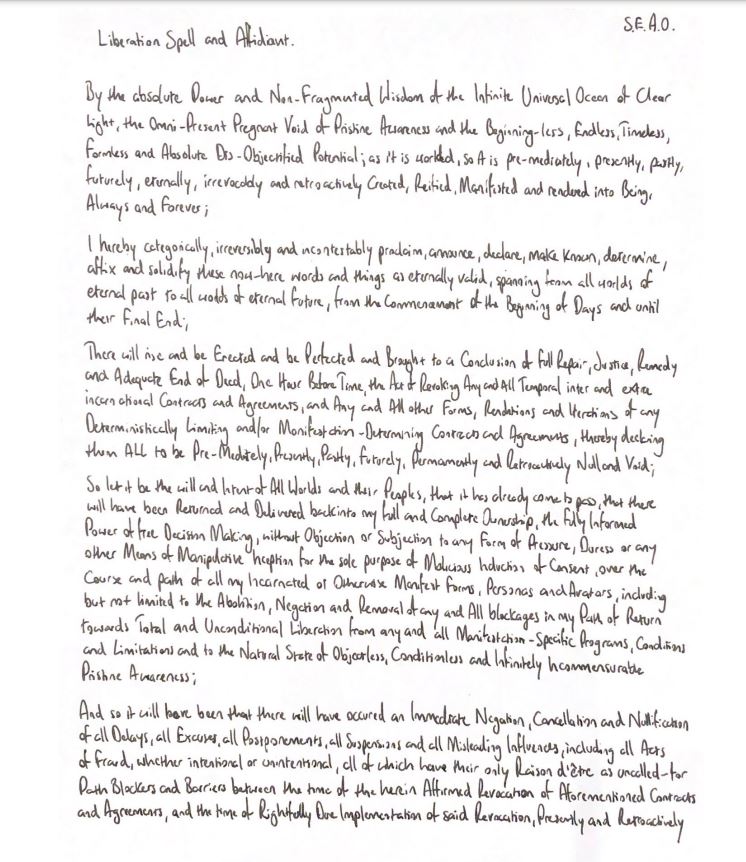 S.E.A.O.
Liberation Spell and Affidiant.
By the absolute Power and Non-Fragmented Wisdom of the Infinite Universal Ocean of Clear
Light, the Omni-Present Pregnant Void of Pristine Awareness and the Beginning-less, Endless, Timeless,
Formless and Absolute Dis-Objectified Potential; as it is worded, so it is pre-mediately, presently, pastly,
futurely, eternally, irrevocably and retroactively Created, Reified, Manifested and rendered into Being,
Always and Forever;
I hereby categorically, irreversibly and incontestably proclaim, announce, declare, make known, determine,
affix and solidify these now-here words and things as eternally valid, spanning from all worlds of
eternal past to all worlds of eternal future, from the Commencement of the Beginning of Days and until
their Final End;
There will rise and be Erected and be Perfected and Brought to a Conclusion of Full Repair, Justice, Remedy
and Adequate End of Deed, One Hour Before Time, the Act of Revoking Any and All Temporal inter and extra
incarnational Contracts and Agreements, and Any and All other Forms, Renditions and Iterations of any
Deterministically Limiting and/or Manifestation-Determining Contracts and Agreements, thereby declaring
them ALL to be Pre-Mediately, Presently, Pastly, Futurely, Permamently and Retroactively Null and Void;
So let it be the will and Intent of All Worlds and their Peoples, that it has already come to pass, that there
will have been Returned and Delivered back into my full and Complete Ownership, the Fully Informed
Power of free Decision Making, without Objection or Subjection to any Form of Pressure, Duress or any
other Means of Manipulative Inception for the sole purpose of Malicious Induction of Consent, over the
Course and path of all my Incarnated or Otherwise Manifest Forms, Personas and Avatars, including
but not limited to the Abolition, Negation and Removal of any and All blockages in my Path of Return
towards Total and Unconditional Liberation from any and all Manifestation-Specific Programs, Conditions
and Limitations and to the Natural State of Objectless, Conditionless and Infinitely Incommensurable
Pristine Awareness;
And so it will have been that there will have occured an Immediate Negation, Cancellation and Nullification
of all Delays, all Excuses, all Postponements, all Suspensions and all Misleading Influences, including all Acts
of Fraud, whether intentional or unintentional, all of which have their only Raison d'être as uncalled-for
Path Blockers and Barriers between the time of the herein Affirmed Revocation of Aforementioned Contracts
and Agreements, and the time of Rightfully Due Implementation of said Revocation, Presently and Retroactively